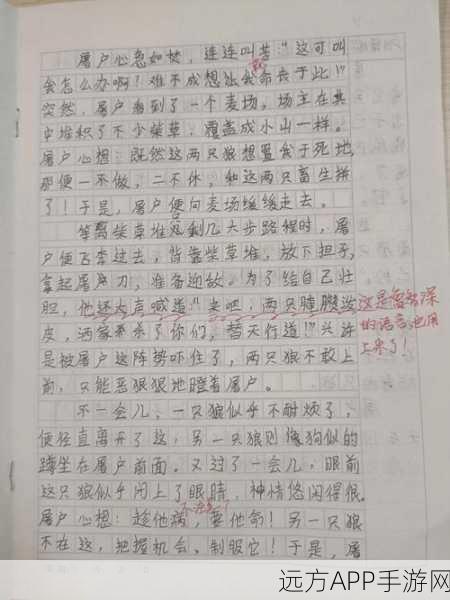 屠户心急如焚，连连叫苦："这可叫
我
会怎么办啊！难不成想让我命丧于此！"
突然，屠户看到了一个麦场，场主在其
中堆积了不少柴草，覆盖成小山一样。
屠户心想：既然这两只狼想置我于死地，
那便一不做，二不休，和这两只畜生拼
了！于是，屠户便向麦场缓缓走去。
等离柴草堆只剩几大步路程时，屠
户便飞奔过去，背靠柴草堆，放下担子，
拿起屠刀，准备迎敌。为了给自己壮
胆，他还大声喊道："来吧，两只腌臜泼
皮，洒家来杀了你们，替天行道！"兴许
是被屠户这阵势吓住了，两只狼不敢上
前，只能恶狠狠地瞪着屠户。
这是鲁智深
的语言也用
上来了！
不一会儿，一只狼似乎不耐烦了，
便径直离开了这，另一只狼则像狗似的
蹲坐在屠户前面。又过了一会儿，眼前
这只狼似乎闭上了眼睛，神情悠闲得很。
屠户心想：趁他病，要他命！另一只狼
不在这，把握机会，制服它！于是，屠
远方APP手游网